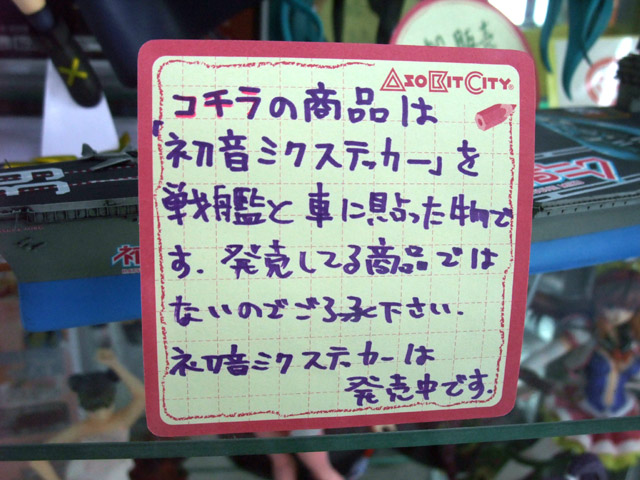 ASOBITCITY
コチラの商品は
「初音ミクステッカー」を
戦艦と車に貼った物で
す.発売してる商品では
ないのでご了承下さい.
初音ミクステッカーは
発売中です.